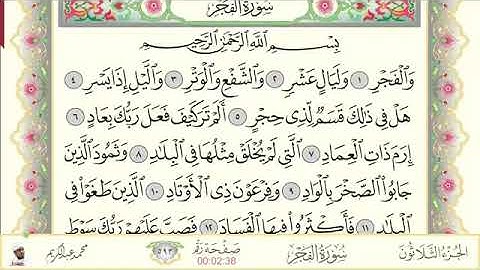 سُورَةُ الفَجْرِ
بِسْمِ اللَّهِ الرَّحْمَٰنِ الرَّحِيمِ
وَالْفَجْرِ ١ وَلَيَالٍ عَشْرٍ ٢ وَالشَّفْعِ وَالْوَتْرِ ٣ وَاللَّيْلِ إِذَا يَسْرِ ٤
هَلْ فِي ذَٰلِكَ قَسَمٌ لِّذِي حِجْرٍ ٥ أَلَمْ تَرَ كَيْفَ فَعَلَ رَبُّكَ بِعَادٍ ٦
إِرَمَ ذَاتِ الْعِمَادِ ٧ الَّتِي لَمْ يُخْلَقْ مِثْلُهَا فِي الْبِلَادِ ٨ وَثَمُودَ الَّذِينَ
جَابُوا الصَّخْرَ بِالْوَادِ ٩ وَفِرْعَوْنَ ذِي الْأَوْتَادِ ١٠ الَّذِينَ طَغَوْا فِي
الْبِلَادِ ١١ فَأَكْثَرُوا فِيهَا الْفَسَادَ ١٢ فَصَبَّ عَلَيْهِمْ رَبُّكَ سَوْطَ
الجزء الثلاثون سُورَةُ الفَجْرِ صفحة رقم ٥٩٣ محمد عبدالكريم
00:02:38